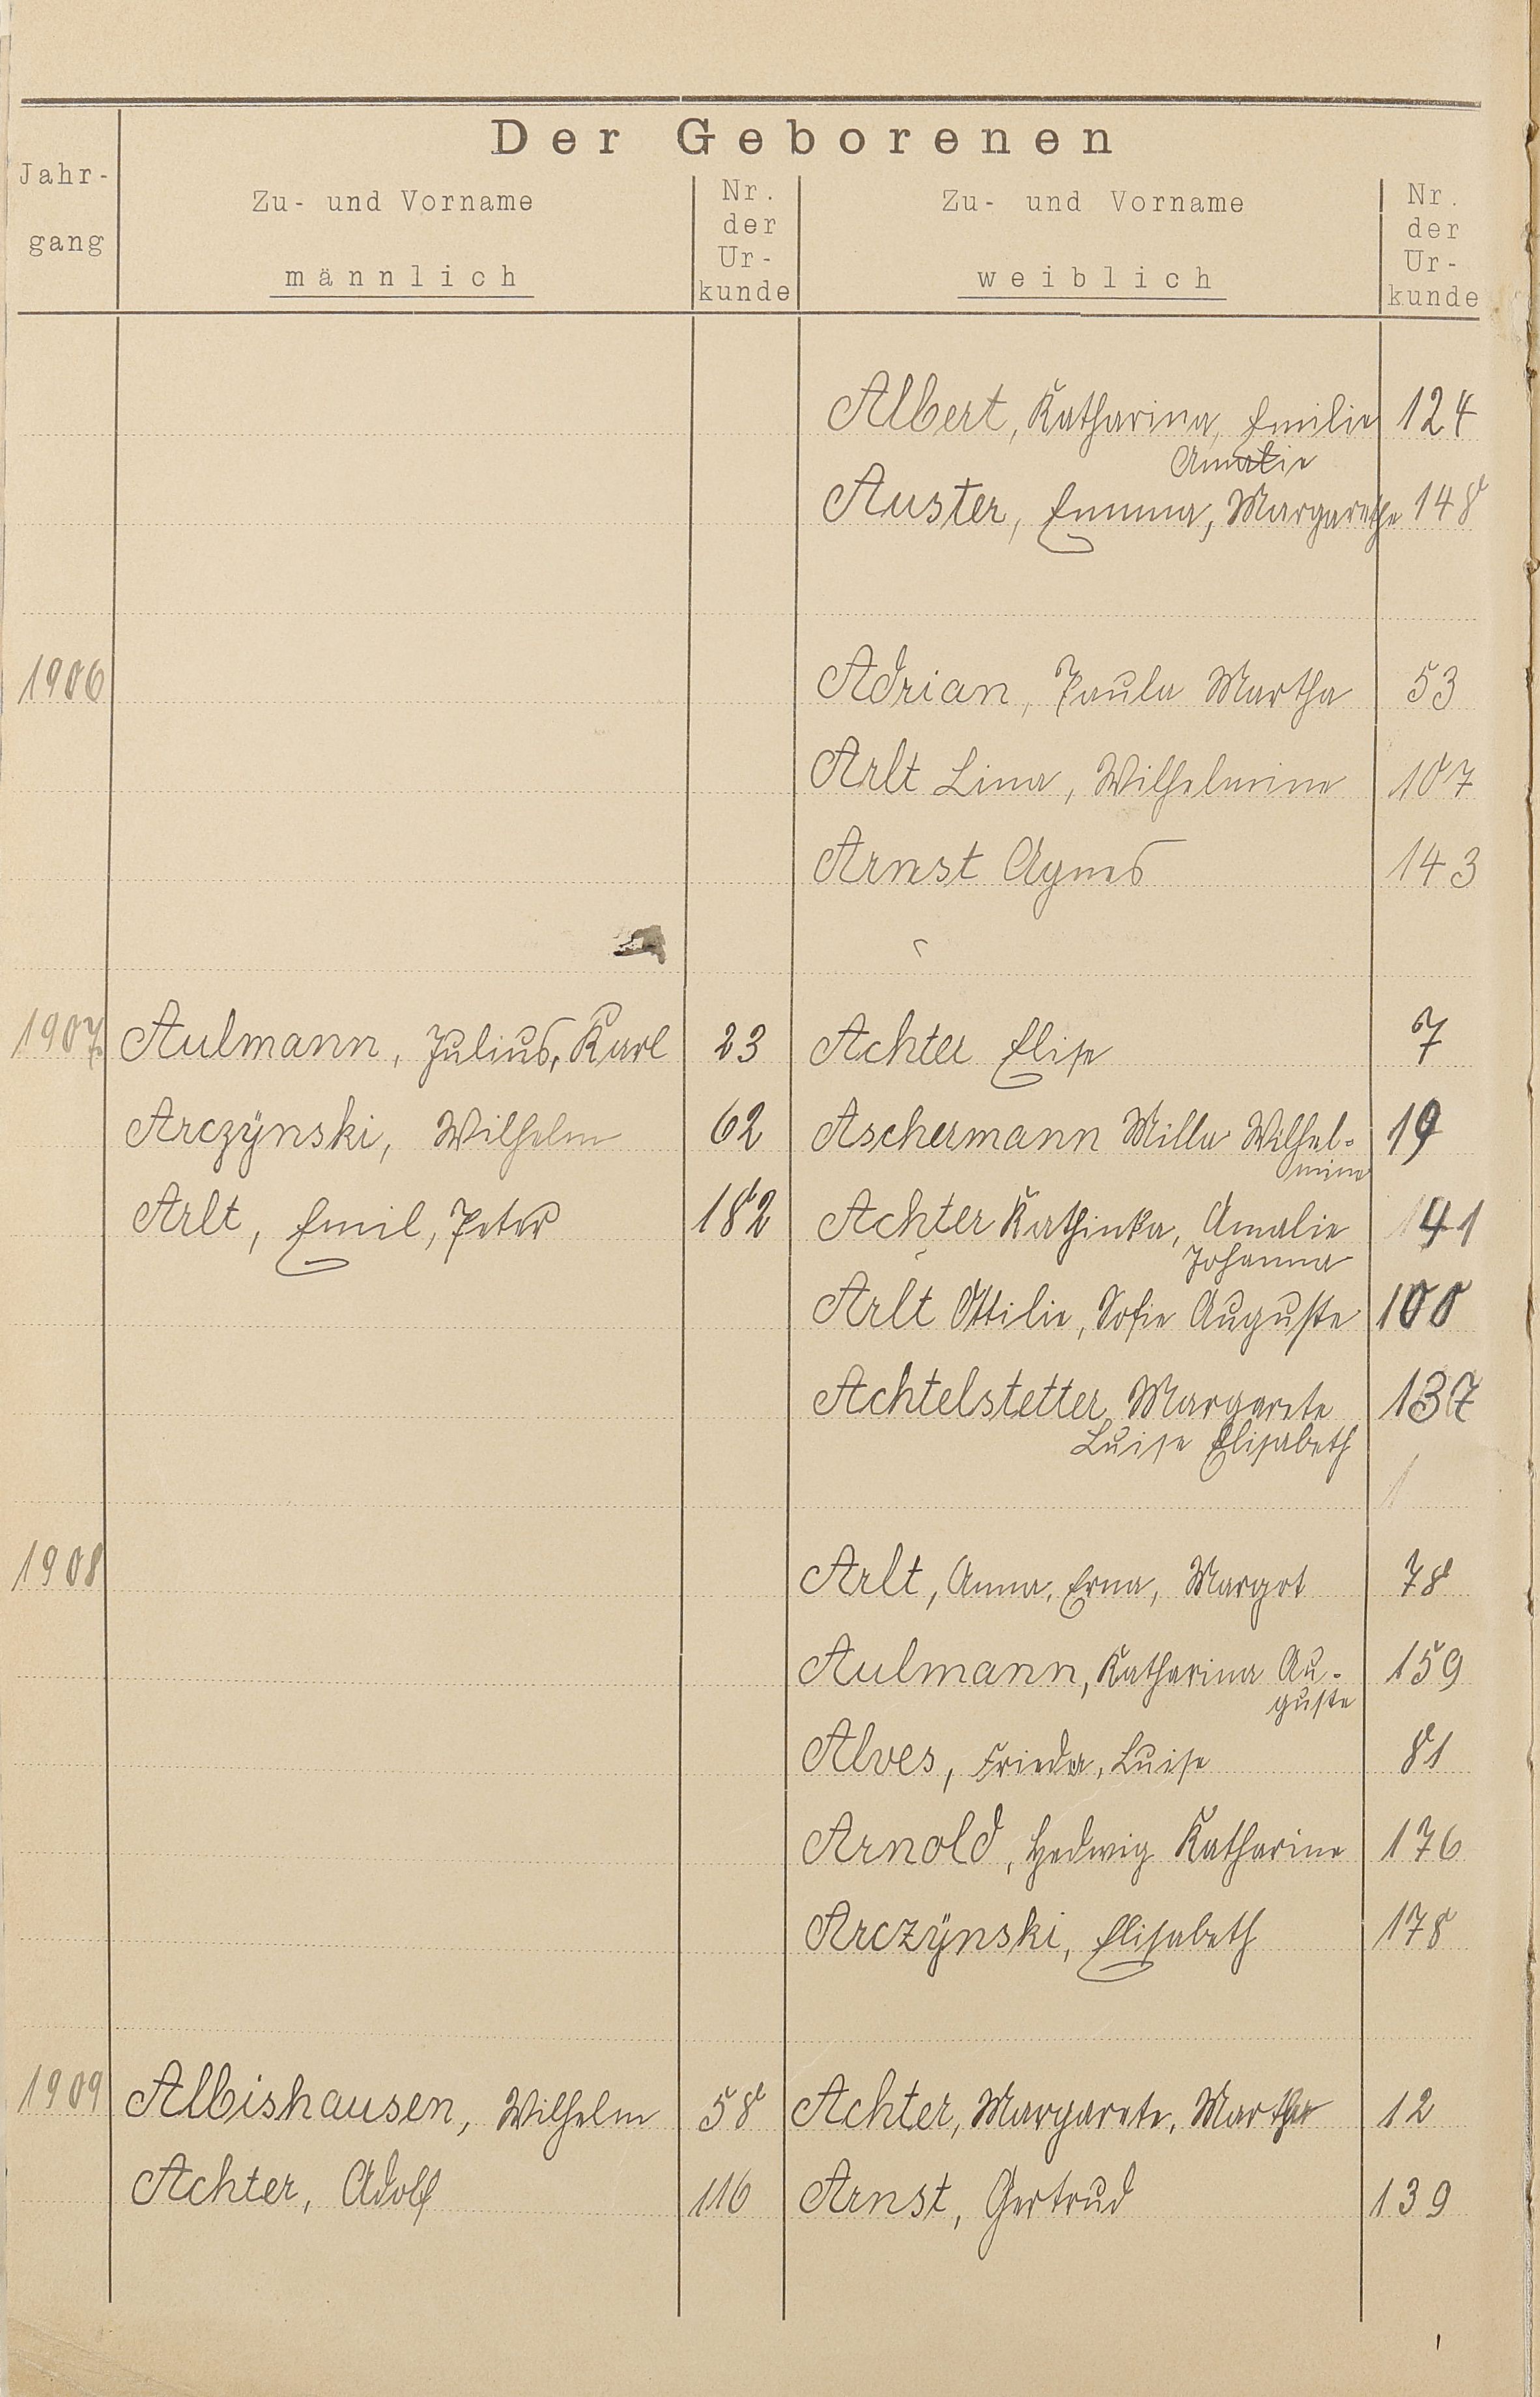 Der Geborenen
Jahr-
gang
Zu- und Vorname
männlich
Nr.
der
Ur-
kunde
Zu- und Vorname
weiblich
Nr.
der
Ur-
kunde
Albert, Katharina, Emilie 124
Amalie
Auster, Emma, Margarethe 148
1906 Adrian, Paula Martha 53
Arlt Lina, Wilhelmine 107
Arnst Agnes 143
1907 Aulmann, Julius, Karl 23 Achter Elise 7
Arczÿnski, Wilhelm 62 Aschermann Milla Wilhel- 19
mine
Arlt, Emil, Peter 182 Achter Kathinka, Amalie 41
Johanna
Arlt Ottilie, Sofie Auguste 100
Achtelstetter, Margarete 137
Luise Elisabeth
1908 Arlt, Anna, Erna, Margot 78
Aulmann, Katharina Au- 159
guste
Alves, Frieda, Luise 81
Arnold, Hedwig Katharine 176
Arczÿnski, Elisabeth 178
1909 Albishausen, Wilhelm 58 Achter, Margarete, Martha 12
Achter, Adolf 116 Arnst, Gertrud 139